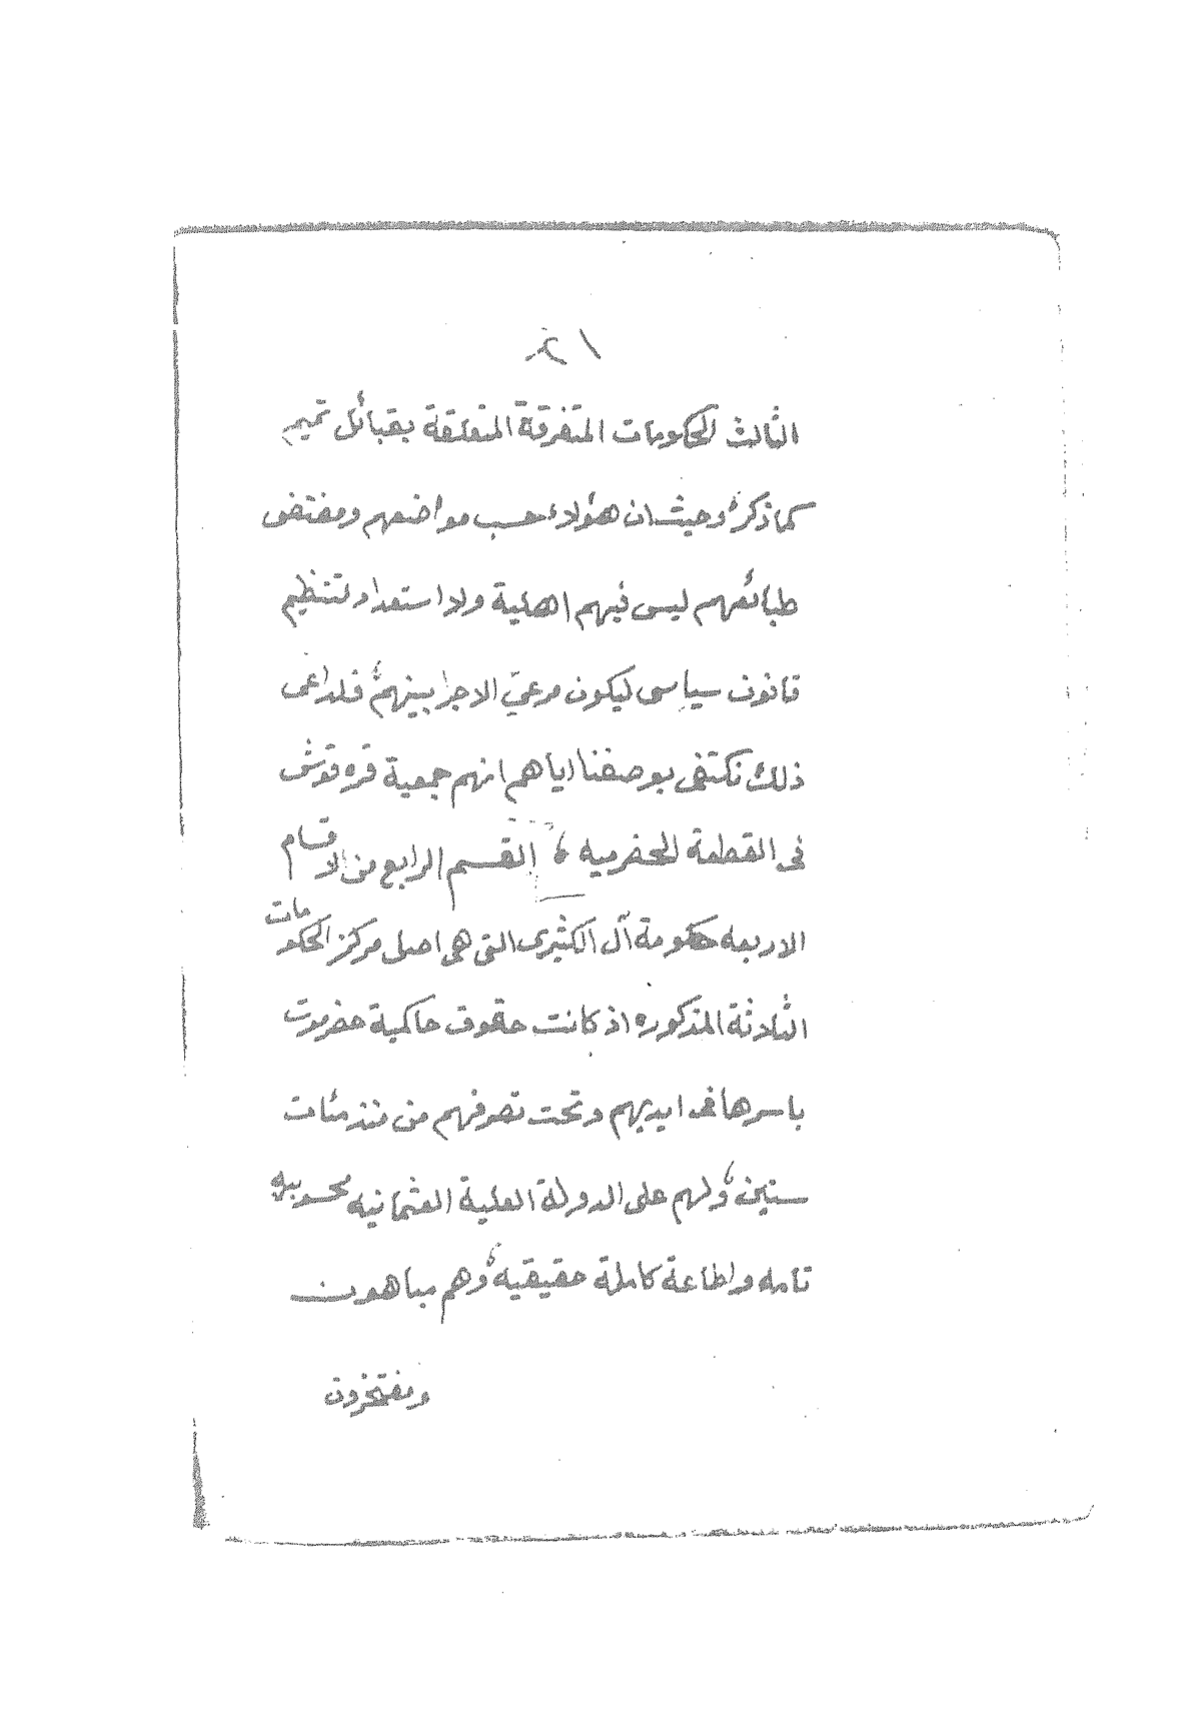 الثالث الحكومات المتفرقة المتعلقة بقبائل تميم
كما ذكر، وحيث ان هؤلاء حسب مواضعهم ومقتضى
طبائعهم ليس فيهم اهلية ولا استعداد لتنظيم
قانون سياسى ليكون مرعيّ الاجرا بينهم، فلداعى
ذلك نكتفى بوصفنا اياهم انهم جمعية قره قوش
فى القطعة الحضرميه ، القسم الرابع من الاقسام
الاربعه حكومة آل الكثيرى التى هى اصل مركز الحكومات
الثلاثة المذكوره اذ كانت حقوق حاكمية حضرموت
باسرها فى ايديهم وتحت تصرفهم من منذ مئات
سنين، ولهم على الدولة العلية العثمانيه محسوبيه
تامه واطاعة كاملة حقيقيه، وهم مباهون
ومفتخرون